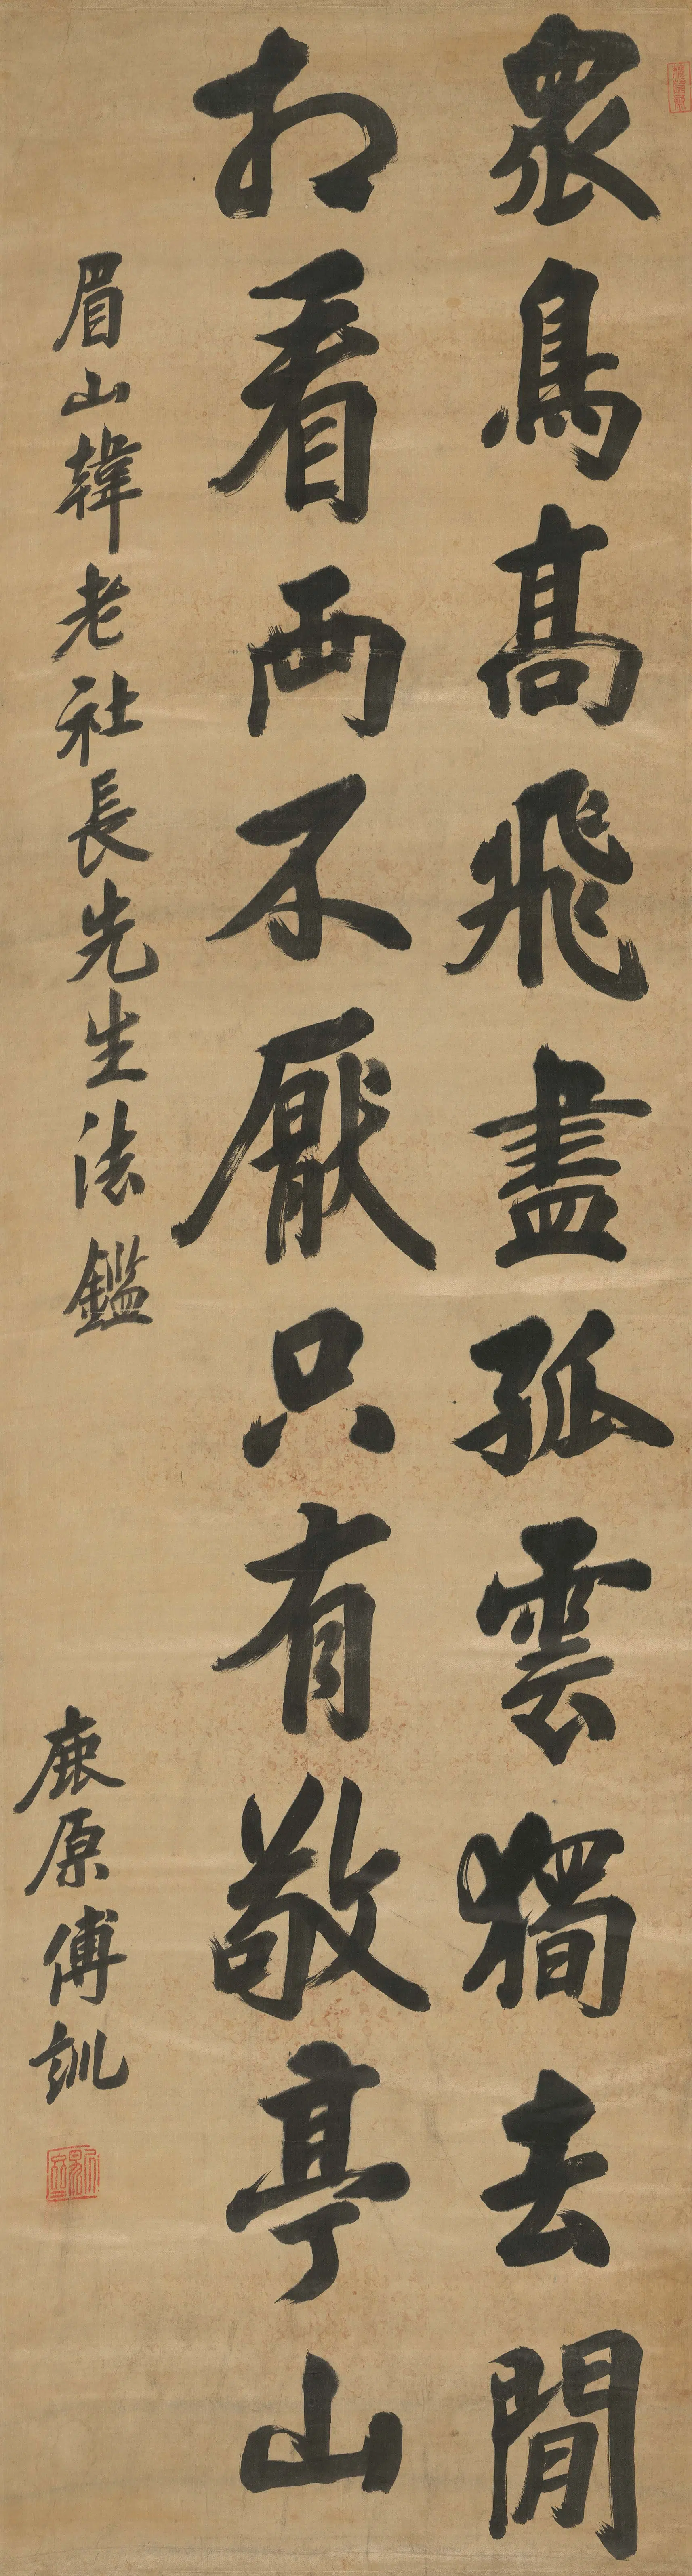 眾鳥高飛盡孤雲獨去閒
相看兩不厭只有敬亭山
眉山韓老社長先生法鑑
鹿原傅訓